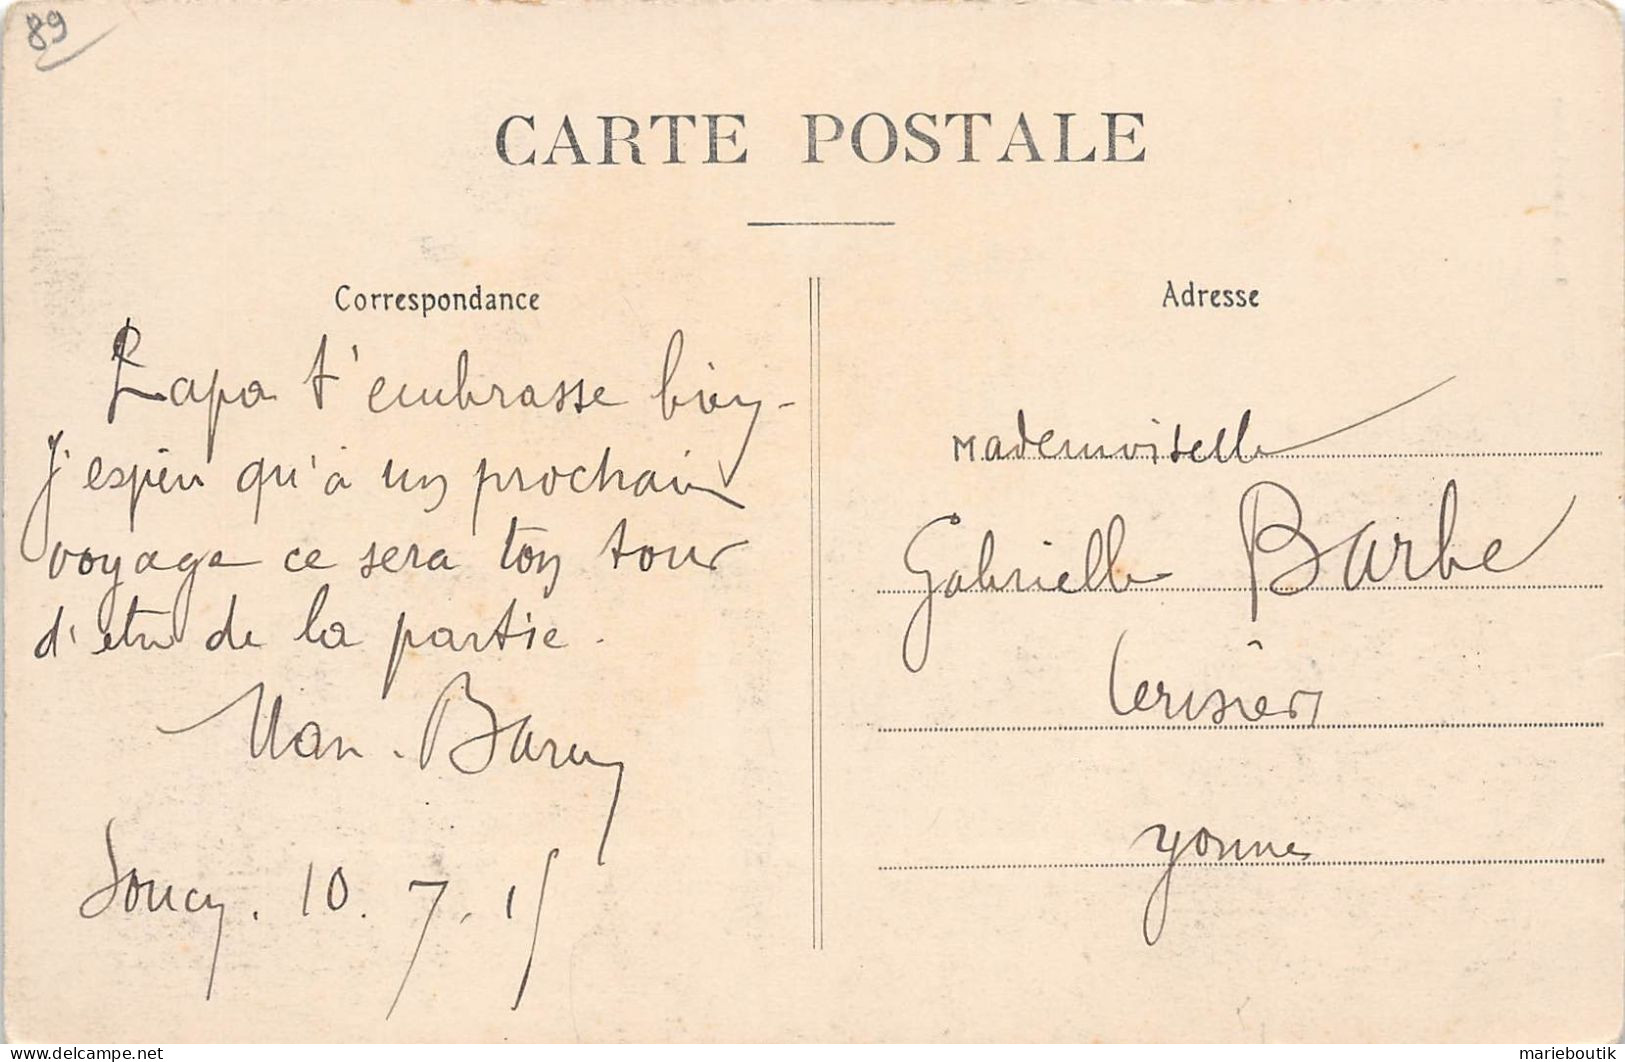 89
CARTE POSTALE
Correspondance
Papa t'embrasse bien -
J'espère qu'à un prochain
voyage ce sera ton tour
d'être de la partie.
Soucy. 10. 7. 15
Adresse
Mademoiselle
Gabrielle Barbe
Cerisiers
Yonne
marieboutik